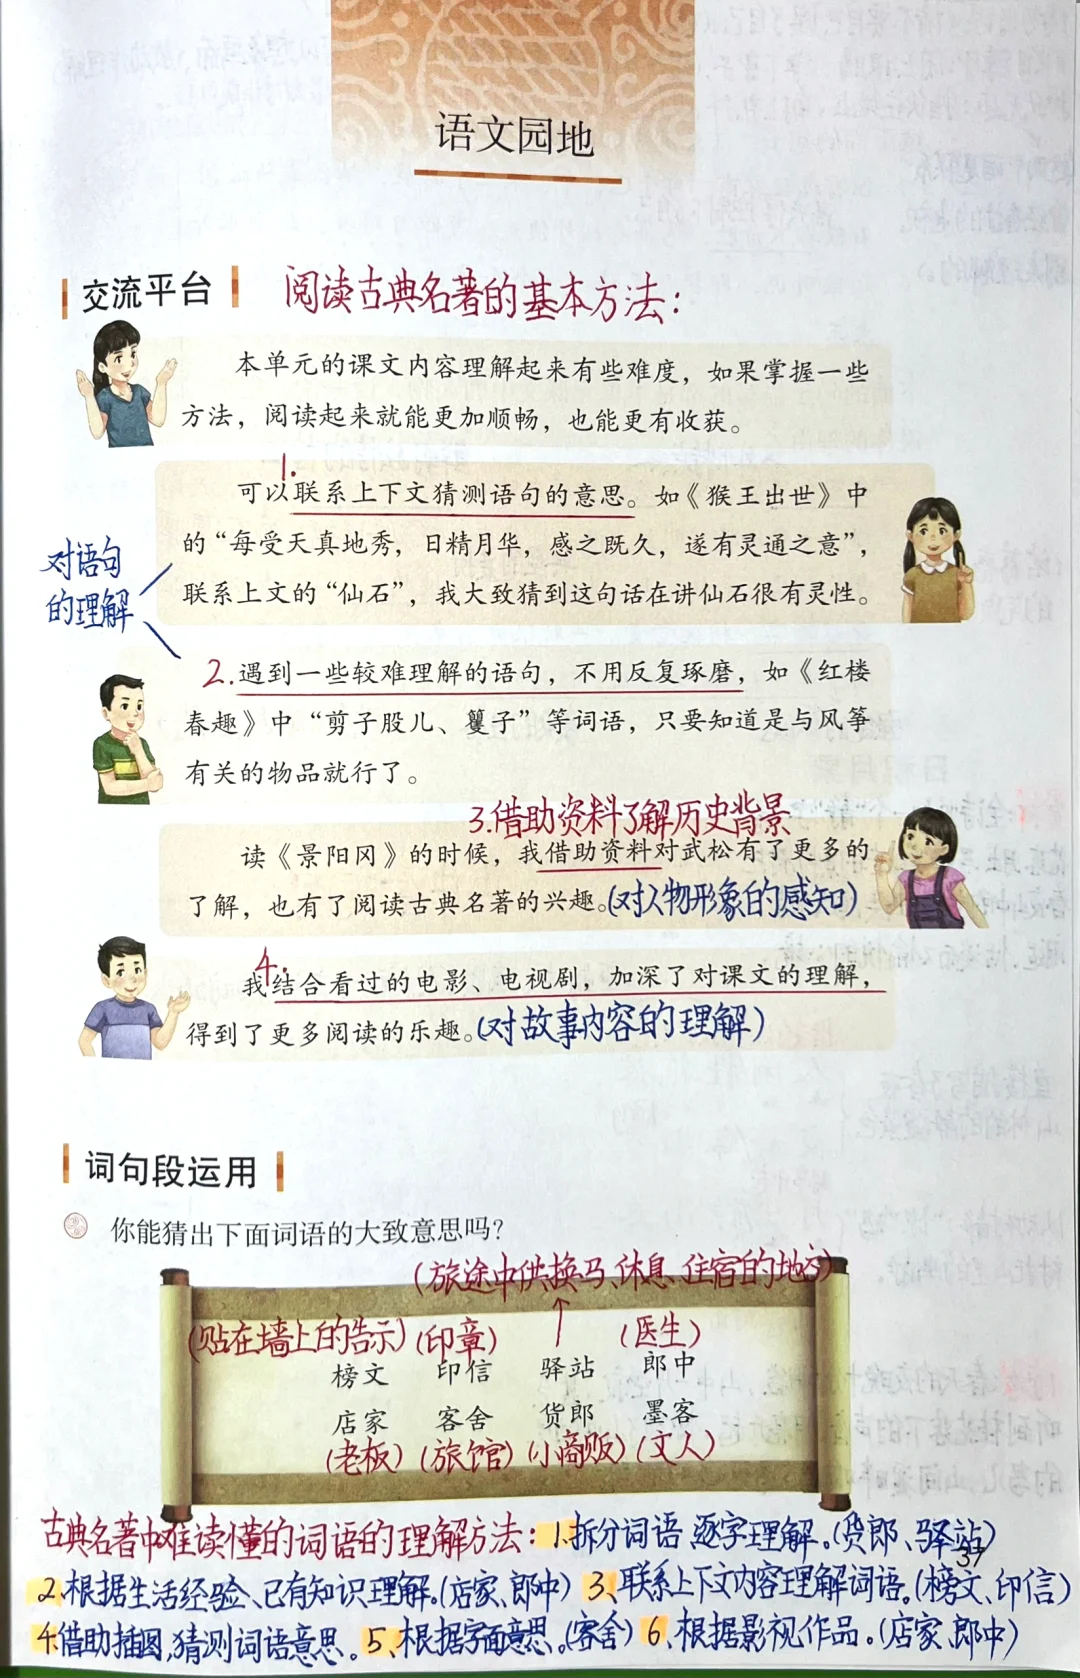 语文园地
交流平台 阅读古典名著的基本方法：
本单元的课文内容理解起来有些难度，如果掌握一些
方法，阅读起来就能更加顺畅，也能更有收获。
1.
可以联系上下文猜测语句的意思。如《猴王出世》中
的“每受天真地秀，日精月华，感之既久，遂有灵通之意”，
联系上文的“仙石”，我大致猜到这句话在讲仙石很有灵性。
对语句
的理解
2.遇到一些较难理解的语句，不用反复琢磨，如《红楼
春趣》中“剪子股儿、籰子”等词语，只要知道是与风筝
有关的物品就行了。
3.借助资料了解历史背景
读《景阳冈》的时候，我借助资料对武松有了更多的
了解，也有了阅读古典名著的兴趣。(对人物形象的感知)
4.
我结合看过的电影、电视剧，加深了对课文的理解，
得到了更多阅读的乐趣。(对故事内容的理解)
词句段运用
你能猜出下面词语的大致意思吗？
(旅途中供换马、休息、住宿的地方)
(贴在墙上的告示) (印章) (医生)
榜文 印信 驿站 郎中
店家 客舍 货郎 墨客
(老板) (旅馆) (小商贩) (文人)
古典名著中难读懂的词语的理解方法：1.拆分词语,逐字理解.(货郎、驿站)
37
2.根据生活经验、已有知识理解.(店家、郎中) 3.联系上下文内容理解词语.(榜文、印信)
4.借助插图,猜测词语意思。5、根据字面意思.(客舍) 6、根据影视作品。(店家、郎中)